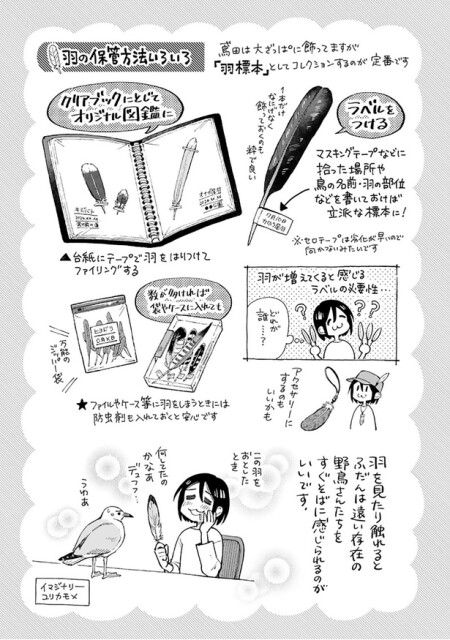 羽の保管方法いろいろ
鳶田は大ざっぱに飾ってますが
「羽標本」としてコレクションするのが定番です
クリアブックにとじて
オリジナル図鑑に
1本だけ
なにげなく
飾っておくのも
粋で良い
ラベルを
つける
マスキングテープなどに
拾った場所や
鳥の名前・羽の部位
などを書いておけば
立派な標本に!
※セロテープは劣化が早いので
向かないみたいです
▲台紙にテープで羽をはりつけて
ファイリングする
数が多ければ
袋やケースに入れても
万能の
ジッパー袋
★ファイルやケース等に羽をしまうときには
防虫剤も入れておくと安心です
羽が増えてくると感じる
ラベルの必要性…
どれが
誰の
……?
アクセサリーに
するのも
いいかも
羽を見たり触れると
ふだんは遠い存在の
野鳥さんたちを
すぐそばに感じられるのが
いいです。
この羽を
おとした
とき
何してた
のかなぁ
デュフフ…
うわぁ
イマジナリー
ユリカモメ